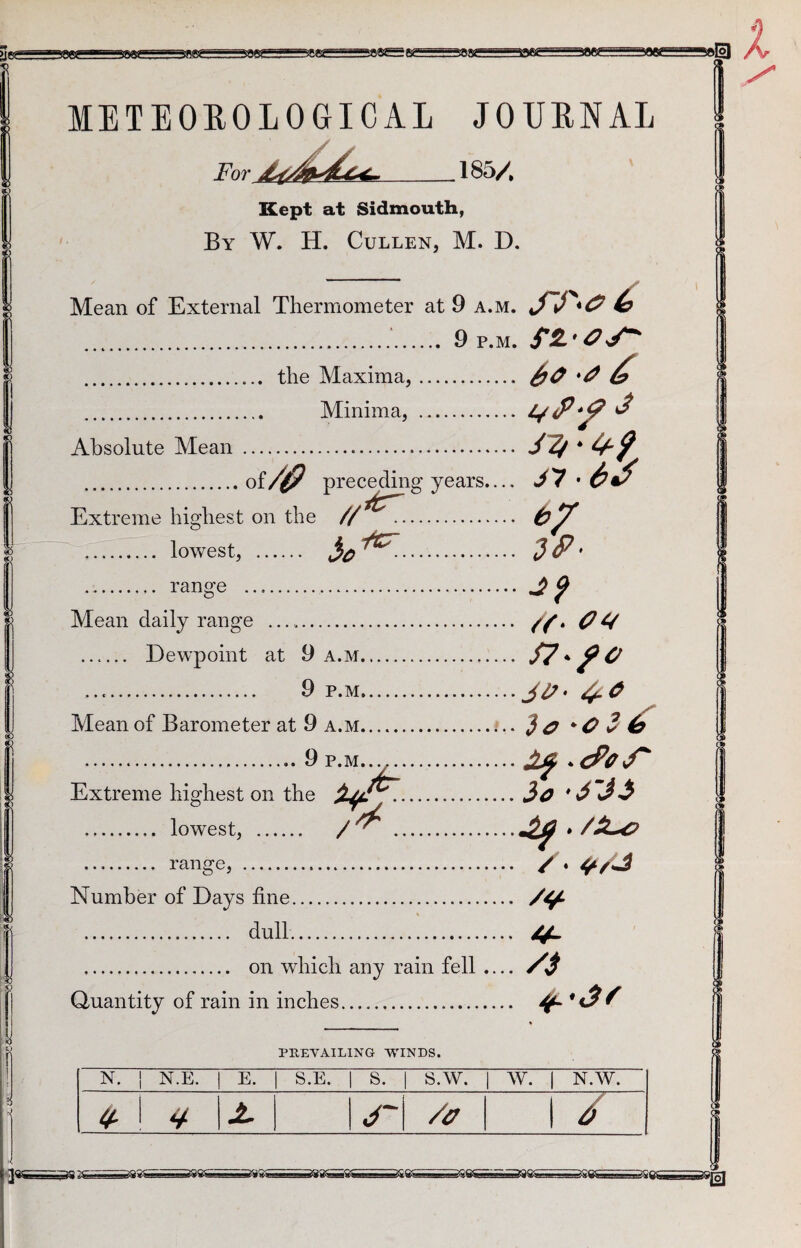 2
METEOROLOGICAL JOURNAL
For October 1851.
Kept at Sidmouth,
By W. H. Cullen, M. D.
Mean of External Thermometer at 9 A.M. 55.06
........ 9 P.M. 52.05
........ the Maxima, ........ 60.06
........ Minima, ........ 48.93
Absolute Mean ........ 54.49
........ of 10 preceding years.... 51.65
Extreme highest on the 11th ........ 67
........ lowest, ...... 30th ........ 38.
........ range ........ 29
Mean daily range ........ 11.04
...... Dewpoint at 9 A.M. ........ 51.90
........ 9 P.M. ........ 50.40
Mean of Barometer at 9 A.M. ........ 30.036
........ 9 P.M. ........ 29.805
Extreme highest on the 24th ........ 30.533
........ lowest, ...... 1st ........ 29.120
........ range, ........ 1.413
Number of Days fine ........ 14
........ dull ........ 4
........ on which any rain fell .... 13
Quantity of rain in inches ........ 4.31
PREVAILING WINDS.
N. | N.E. | E. | S.E. | S. | S.W. | W. | N.W.
4 | 4 | 2 | | 5 | 10 | | 6